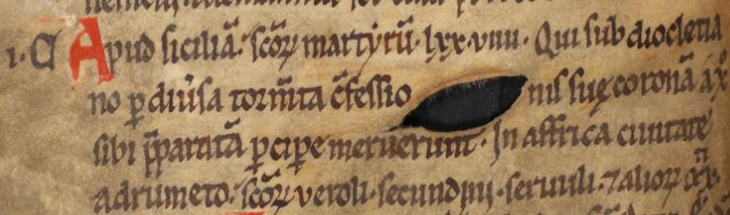 i. A Apud siciliā. scōꝝ martẏrū. lxx.viiii. Qui sub diocletia
no ꝑ diūsa torm̄ta c̄fessio nis suę coronā a xp̄o
sibi p̄paratā ꝑcipe meruerunt. In affrica ciuitate
adrumeto. scōꝝ veroli. secundini. seruuli. ⁊ alioꝝ